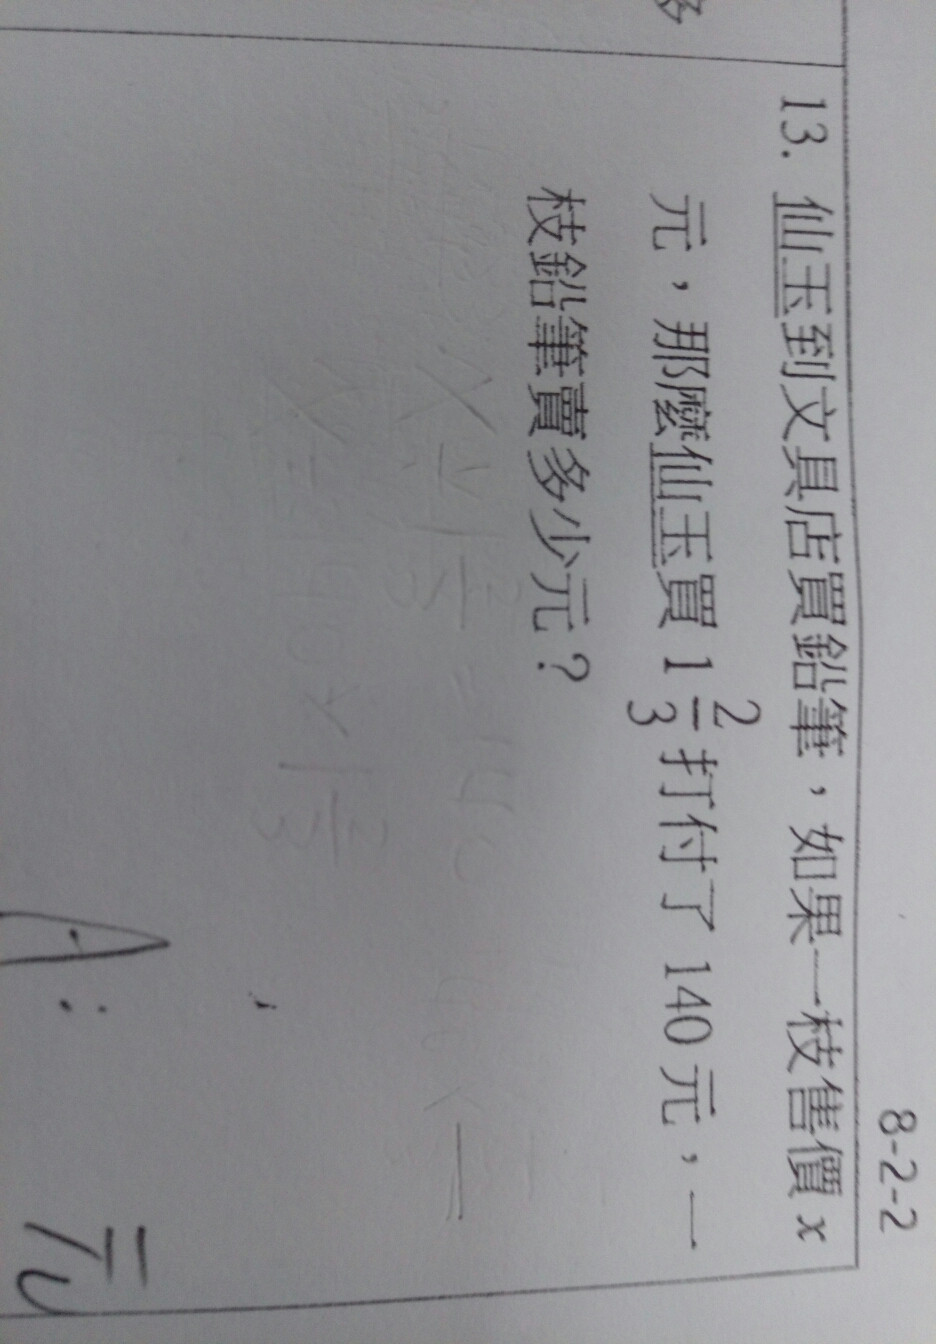 8-2-2
多
13. 仙玉到文具店買鉛筆，如果一枝售價 x
元，那麼仙玉買 1 2/3 打付了 140 元，一
枝鉛筆賣多少元？
A: 元